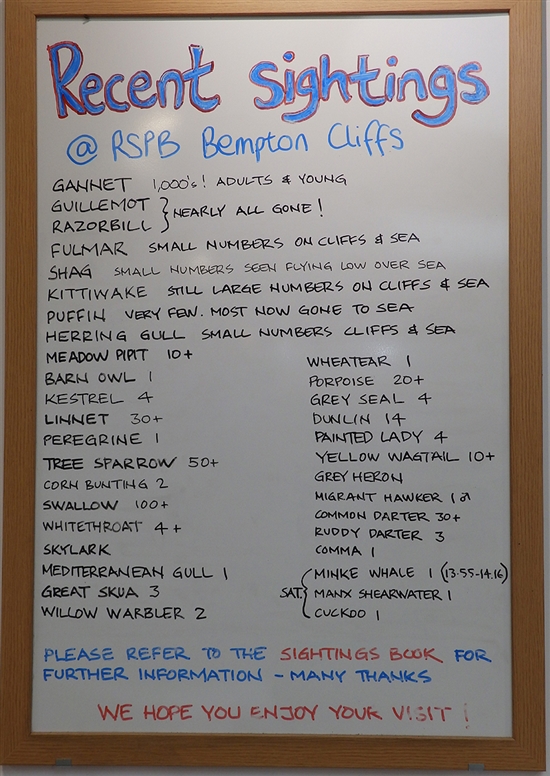 Recent sightings
@ RSPB Bempton Cliffs
GANNET 1,000's! ADULTS & YOUNG
GUILLEMOT
RAZORBILL } NEARLY ALL GONE!
FULMAR SMALL NUMBERS ON CLIFFS & SEA
SHAG SMALL NUMBERS SEEN FLYING LOW OVER SEA
KITTIWAKE STILL LARGE NUMBERS ON CLIFFS & SEA
PUFFIN VERY FEW. MOST NOW GONE TO SEA
HERRING GULL SMALL NUMBERS CLIFFS & SEA
MEADOW PIPIT 10+
BARN OWL 1
KESTREL 4
LINNET 30+
PEREGRINE 1
TREE SPARROW 50+
CORN BUNTING 2
SWALLOW 100+
WHITETHROAT 4+
SKYLARK
MEDITERRANEAN GULL 1
GREAT SKUA 3
WILLOW WARBLER 2
WHEATEAR 1
PORPOISE 20+
GREY SEAL 4
DUNLIN 14
PAINTED LADY 4
YELLOW WAGTAIL 10+
GREY HERON
MIGRANT HAWKER 1♂
COMMON DARTER 30+
RUDDY DARTER 3
COMMA 1
MINKE WHALE 1 (13.55-14.16)
SAT. { MANX SHEARWATER 1
CUCKOO 1
PLEASE REFER TO THE SIGHTINGS BOOK FOR
FURTHER INFORMATION - MANY THANKS
WE HOPE YOU ENJOY YOUR VISIT!